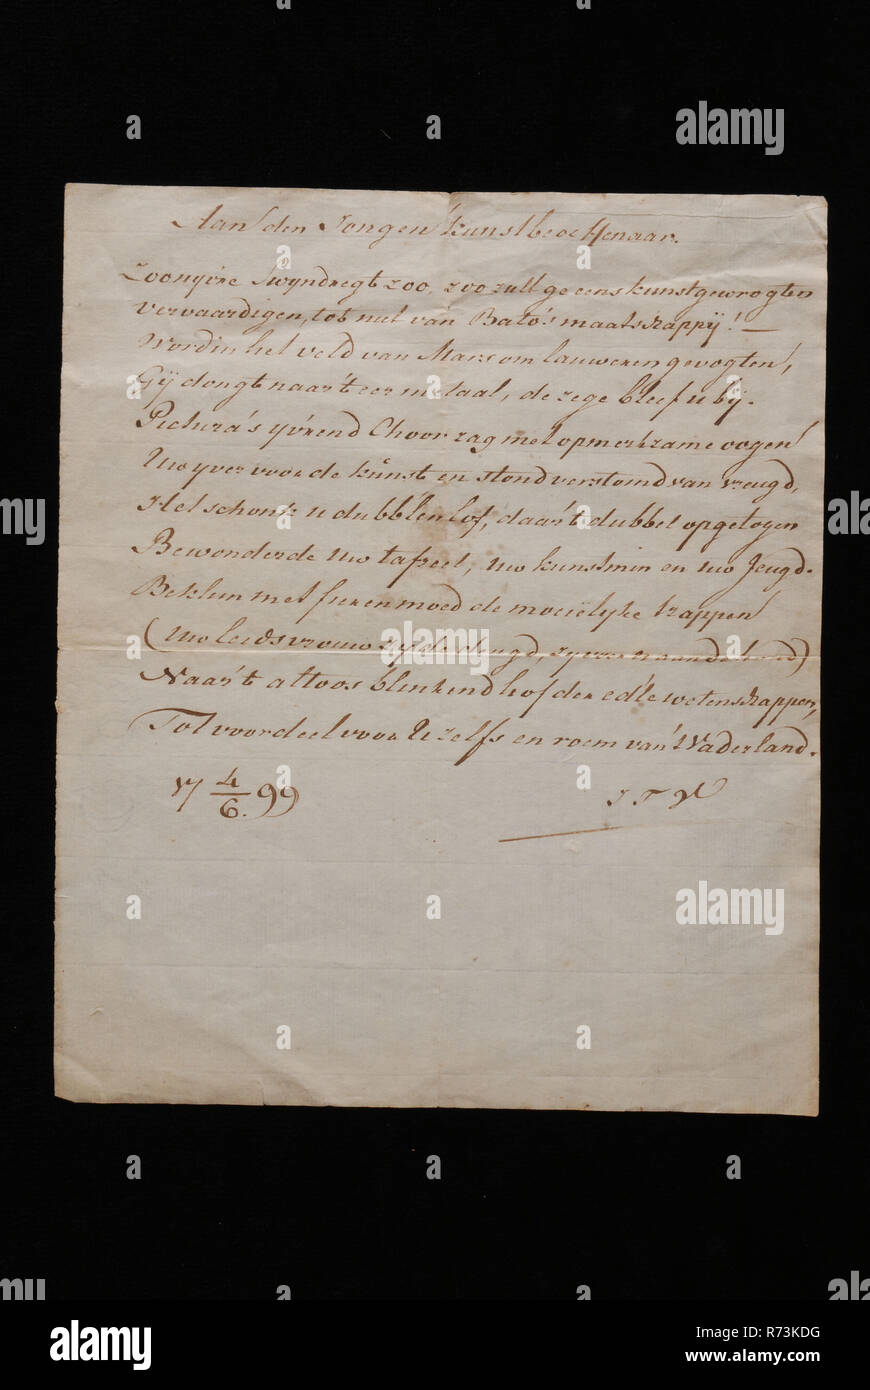 Aan den Jongen kunstbeoeffenaar.
Swyndregt zoo, zoo zult ge eens kunstgewrogten
vervaardigen, tot nut van Bato's maatschappij! —
Word in het veld van Mars om lauweren gevogten,
Gij dongt naar 't eermetaal, de zege bleef u bij.
Pictura's yv'rend Choor zag met opmerkzame oogen
Uw yver voor de kunst en stond verstomd van vreugd,
Het schonk u dubblen lof, daar 't dubbel opgetogen
Bewonderde Uw tafreel, uw kunstmin en uw Jeugd.
Beklim met fieren moed de moeielyke trappen
(Uw leidsvrouw zy de deugd, de hand)
Naar 't altoos blinkend hof der ed'le wetenschappen,
Tot voordeel voor U zelfs en roem van 't Vaderland.
17 4/6. 99
J T V
alamy
Image ID: R73KDG
www.alamy.com